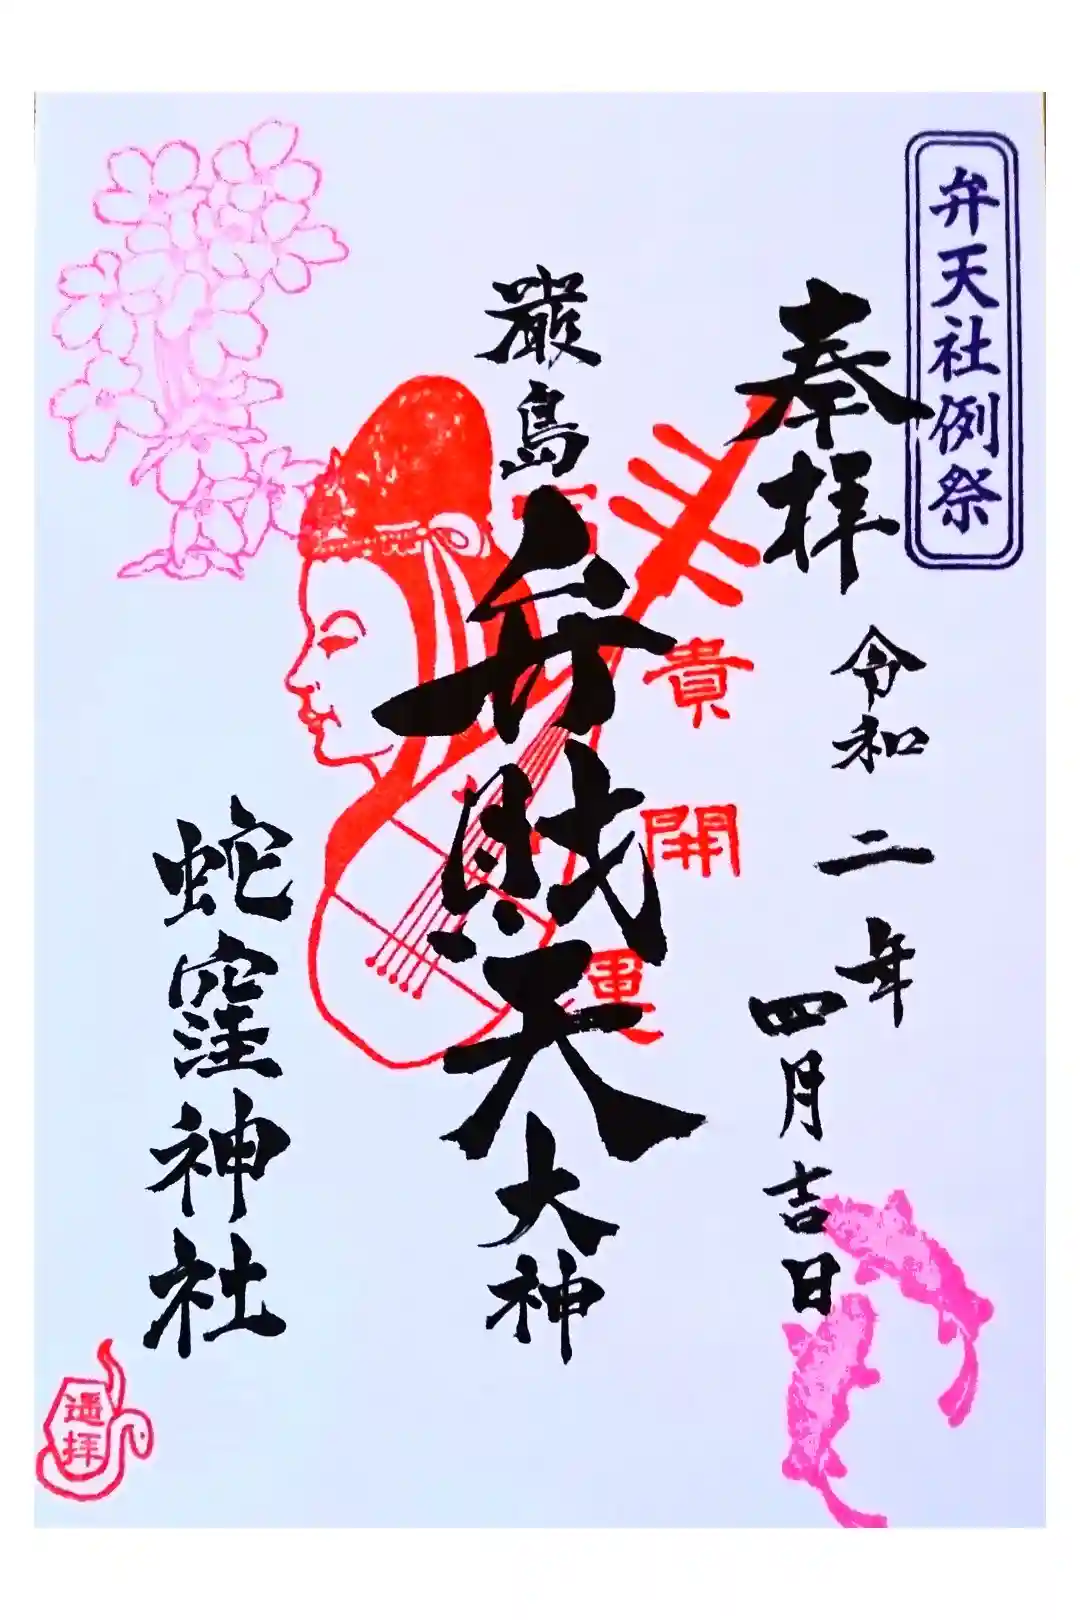 弁天社例祭
奉拝
令和二年
四月吉日
厳島
弁財天
大神
貴
開
運
蛇窪神社
遥拝